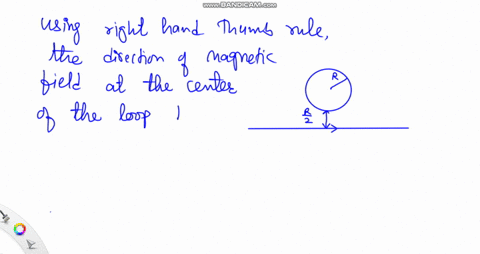 WWW.BANDICAM.COM
using right hand thumb rule,
the direction of magnetic
field at the center
of the loop
R
R/2